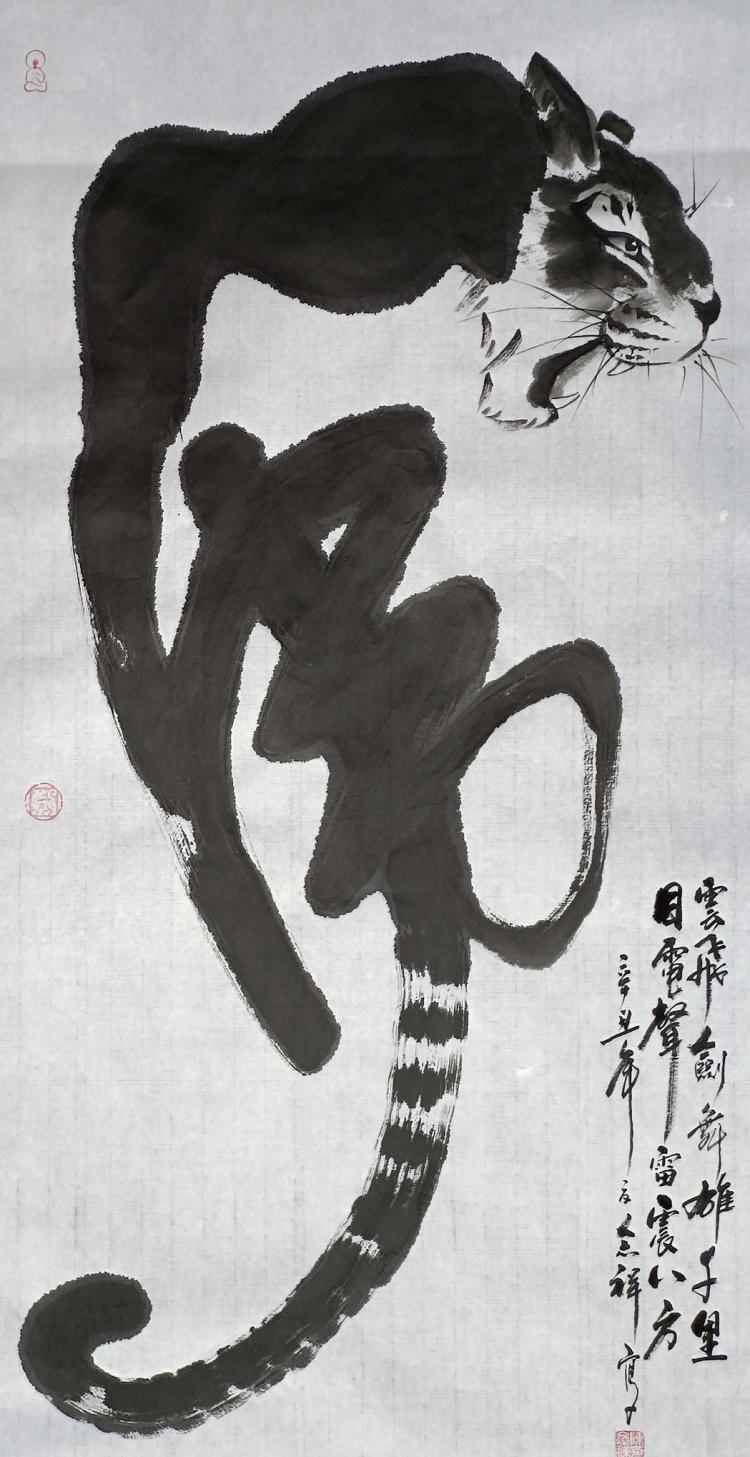 虎
雲飛劍舞雄千里
目電聲雷震八方
辛丑年
念祥寫